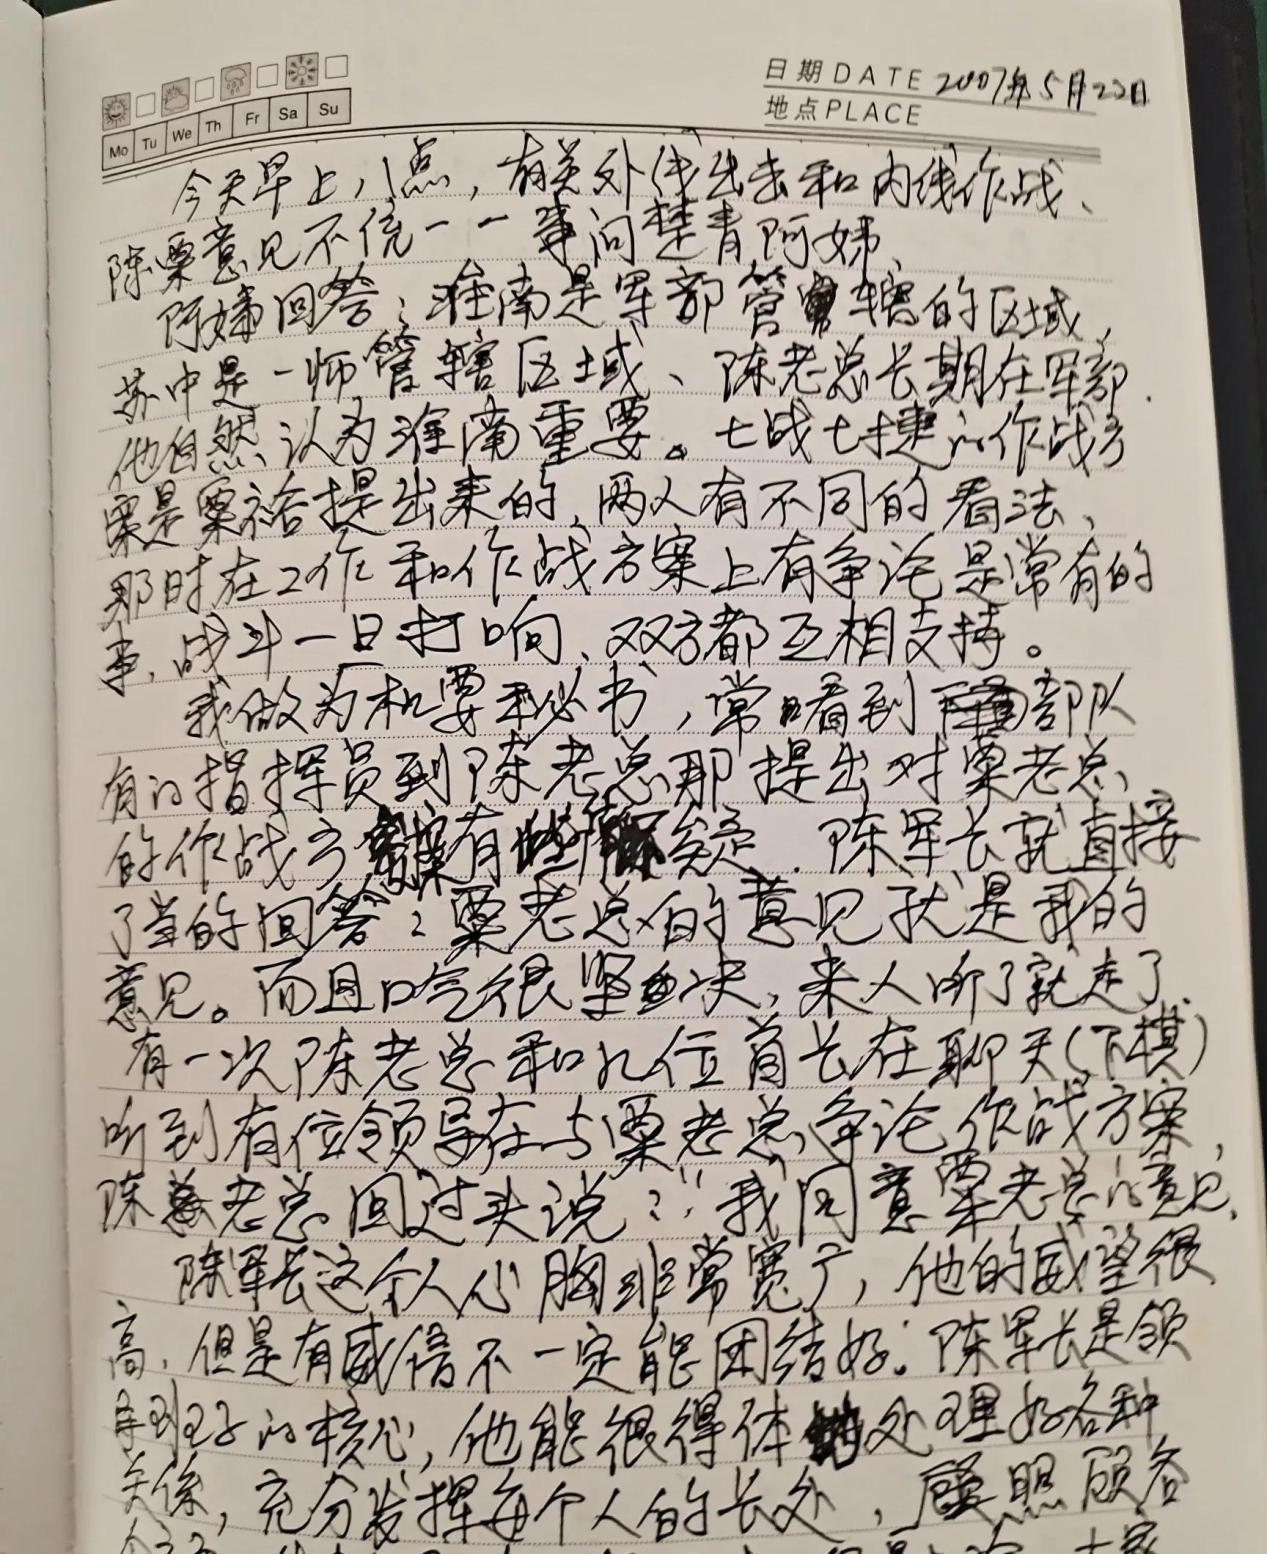 日期DATE 2007年5月22日
地点PLACE
Mo Tu We Th Fr Sa Su
今天早上八点，有关外线出击和内线作战、
陈粟意见不统一一事问楚青阿姊、
阿姊回答：淮南是军部管辖的区域，
苏中是一师管辖区域、陈老总长期在军部.
他自然认为淮南重要。七战七捷的作战方
案是粟裕提出来的，两人有不同的看法、
那时在工作和作战方案上有争论是常有的
事，战斗一旦打响、双方都互相支持。
我做为机要秘书，常看到部队
有的指挥员到陈老总那提出对粟老总
的作战方案有些疑. 陈军长就直接
了当的回答：粟老总的意见就是我的
意见。而且口气很坚决，来人听了就走了.
有一次陈老总和几位首长在聊天(下棋)
听到有位领导在与粟老总争论作战方案，
陈老总回过头说：“我同意粟老总的意见、
陈军长这个人心胸非常宽广，他的威望很
高，但是有威信不一定能团结好. 陈军长是领
导班子的核心，他能很得体处理好各种
关係，充分发挥每个人的长处，照顾各